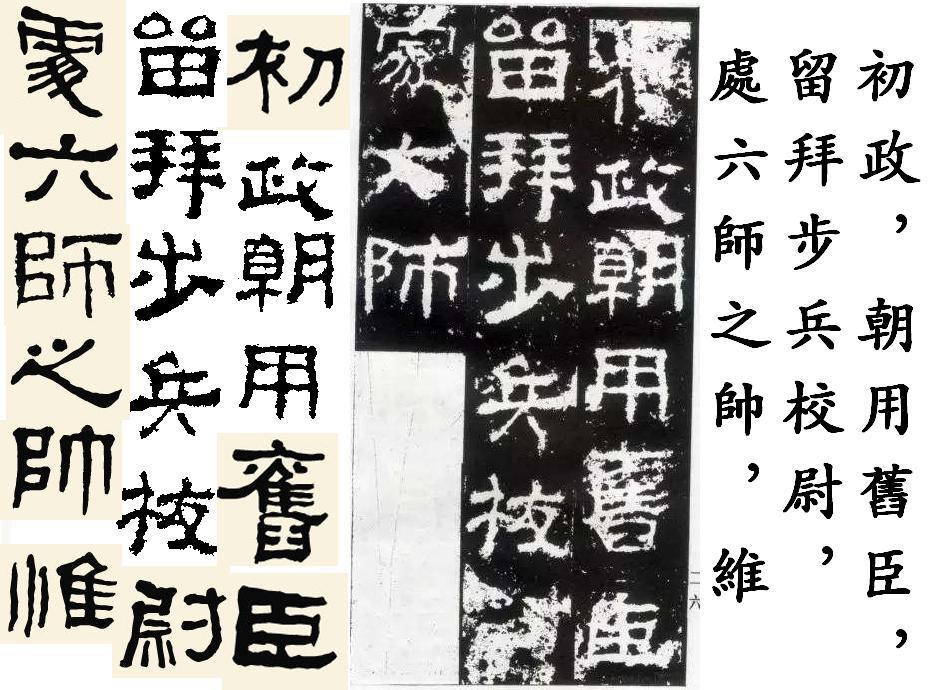 初政，朝用舊臣，
留拜步兵校尉，
處六師之帥，維
初政朝用舊臣
留拜步兵校尉
處六師
二六
初政朝用舊臣
留拜步兵校尉
處六師之帥惟